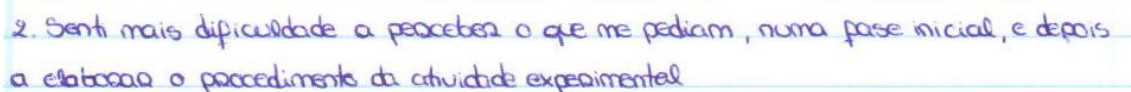 2. Senti mais dificuldade a perceber o que me pediam, numa fase inicial, e depois
a elaborar o procedimento da atividade experimental